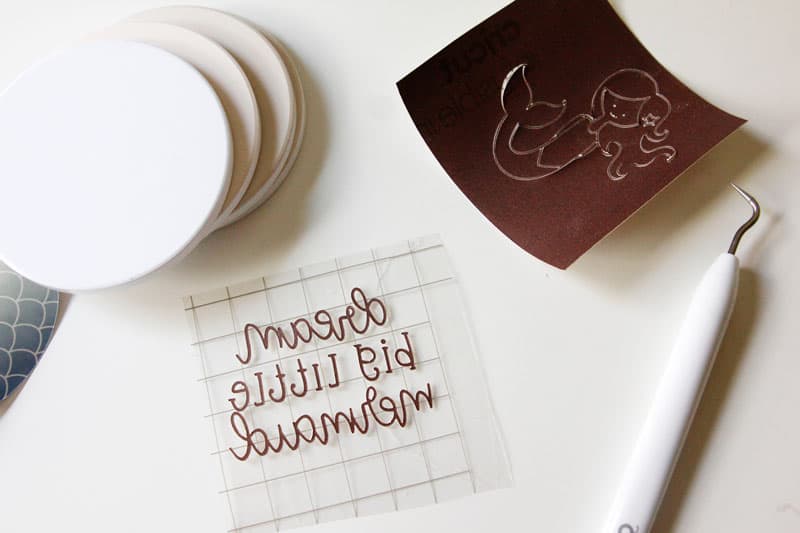 cricut
dream
big little
mermaid